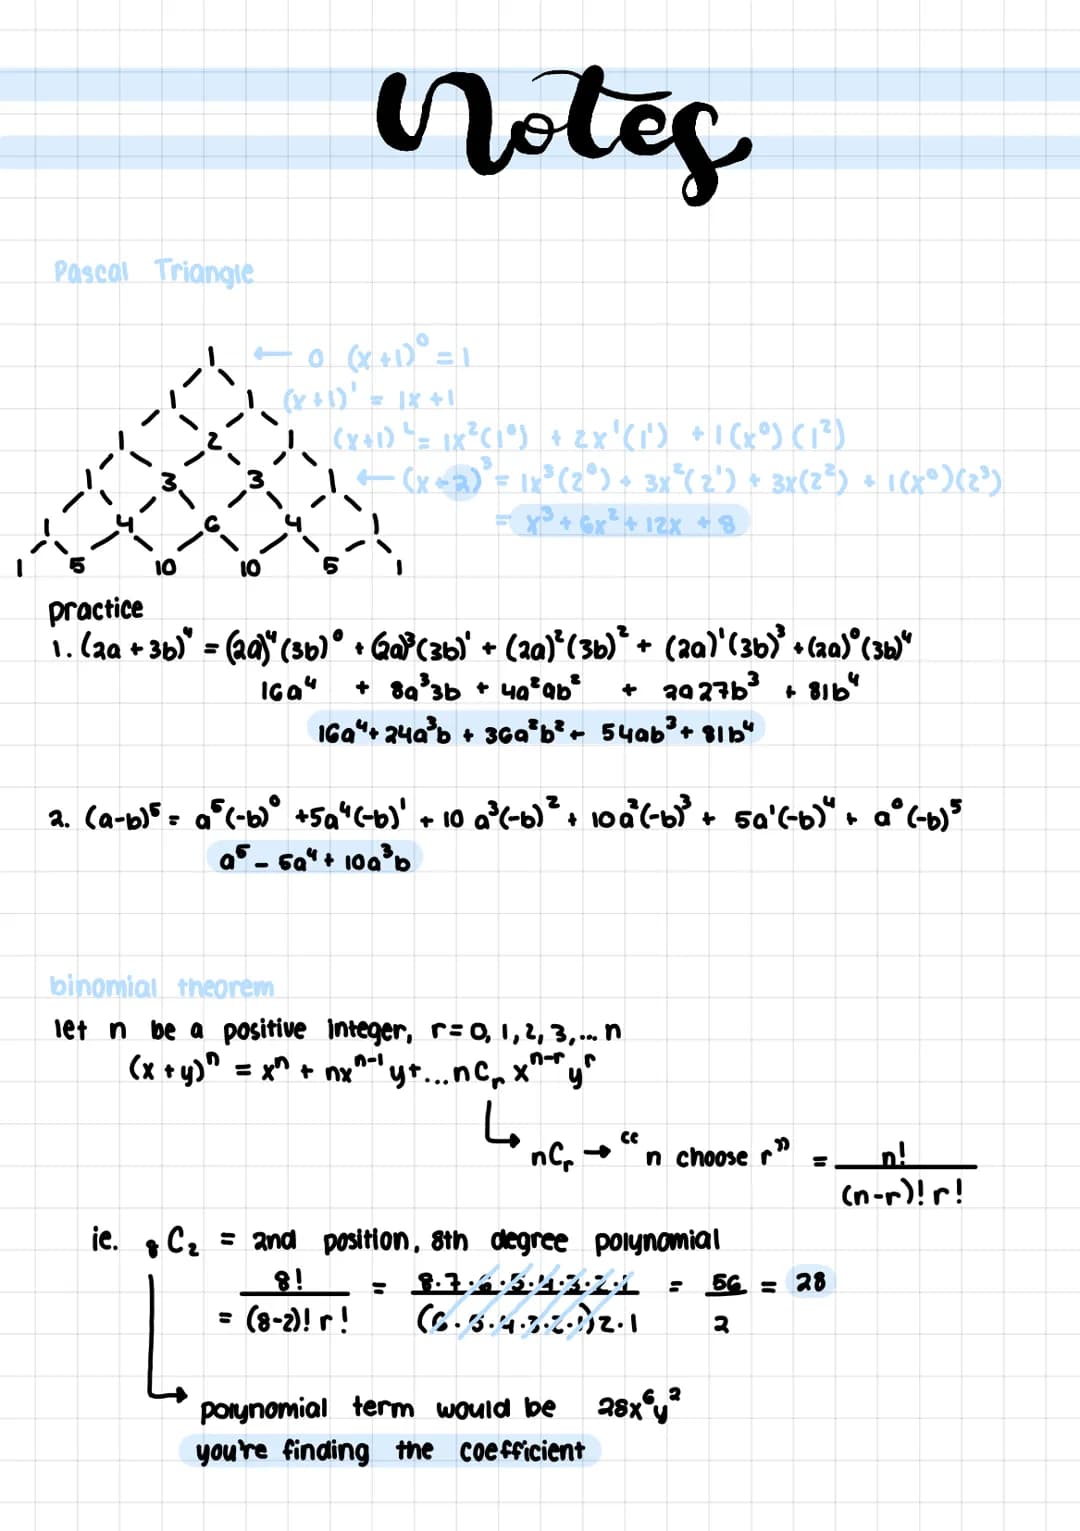 Notes
Pascal Triangle
1 ← 0 (x+1)⁰ = 1
1 1 (x+1)¹ = 1x+1
1 2 1 (x+1)² = 1x²(1⁰) + 2x¹(1¹) + 1(x⁰)(1²)
1 3 3 1 ← (x+2)³ = 1x³(2⁰) + 3x²(2¹) + 3x(2²) + 1(x⁰)(2³)
1 4 6 4 1 = x³ + 6x² + 12x + 8
1 5 10 10 5 1
practice
1. (2a + 3b)⁴ = (2a)⁴(3b)⁰ + (2a)³(3b)¹ + (2a)²(3b)² + (2a)¹(3b)³ + (2a)⁰(3b)⁴
16a⁴ + 8a³3b + 4a²9b² + 2a27b³ + 81b⁴
16a⁴ + 24a³b + 36a²b² + 54ab³ + 81b⁴
2. (a-b)⁵ = a⁵(-b)⁰ + 5a⁴(-b)¹ + 10 a³(-b)² + 10a²(-b)³ + 5a¹(-b)⁴ + a⁰(-b)⁵
a⁵ - 5a⁴ + 10a³b
binomial theorem
let n be a positive integer, r = 0, 1, 2, 3, ... n
(x + y)ⁿ = xⁿ + nxⁿ⁻¹ y + ... nCᵣ xⁿ⁻ʳ yʳ
nCᵣ → "n choose r" = n! / (n-r)! r!
ie. ₈C₂ = 2nd position, 8th degree polynomial
= 8! / (8-2)! r! = 8·7·6·5·4·3·2·1 / (6·5·4·3·2·1)2·1 = 56 / 2 = 28
polynomial term would be 28x⁶y²
you're finding the coefficient